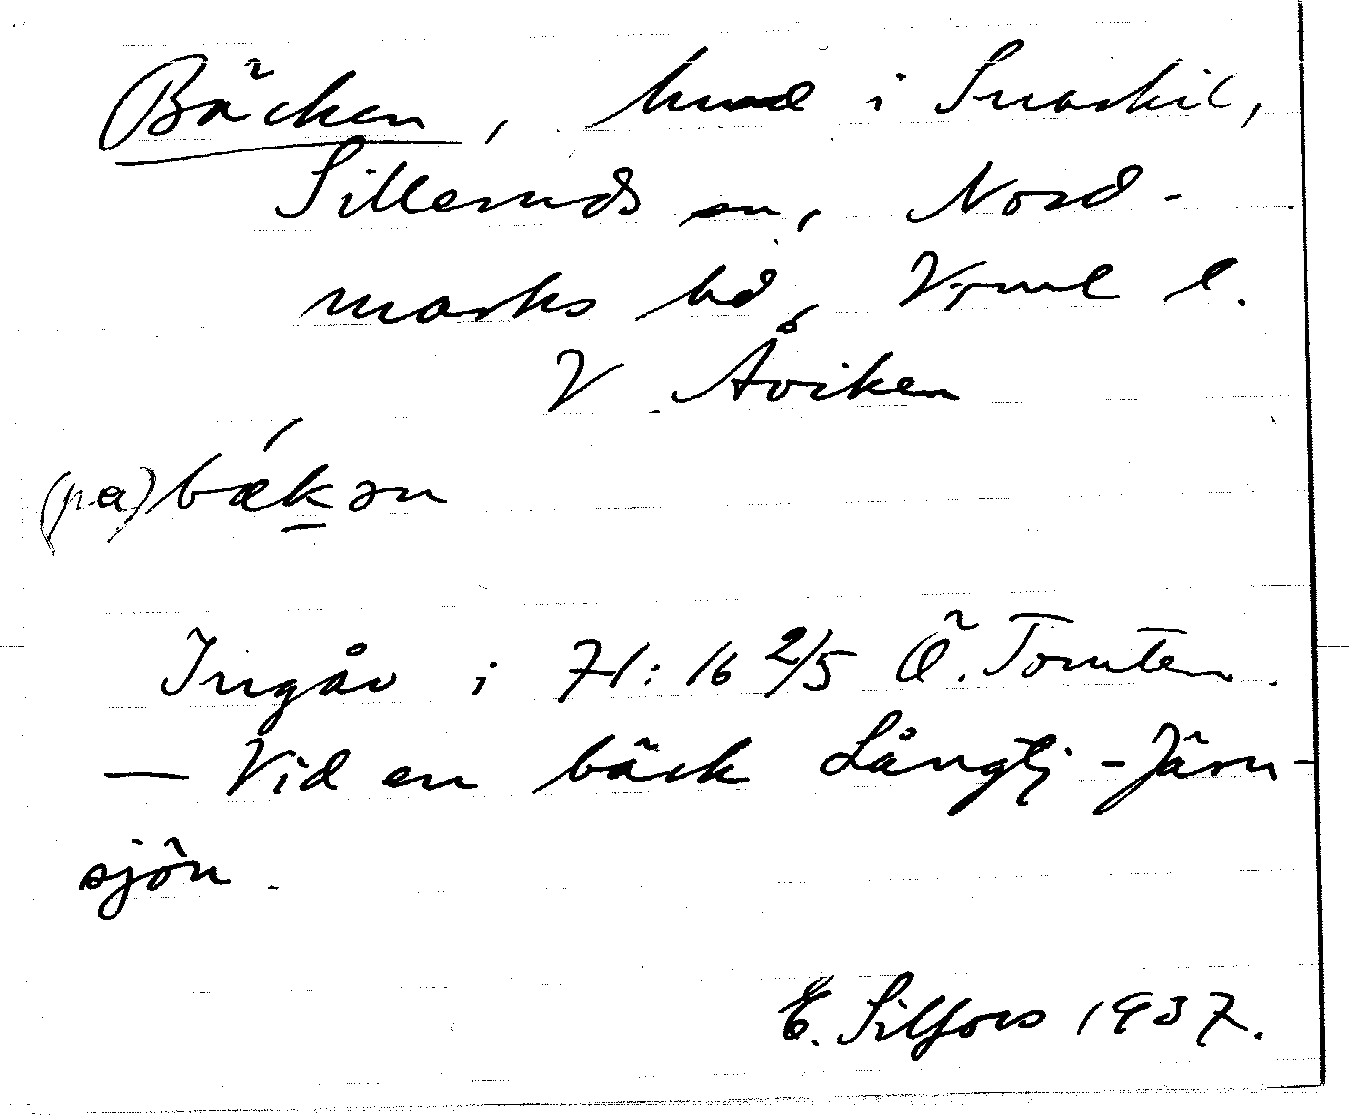 Bäcken, hmd i Snarkil,
Silleruds sn, Nord-
marks hd, Vrml l.
V Åviken
(pa) bækən
Ingår i 71:16 2/5 Ö. Tomten.
— Vid en bäck Långtj - Järn-
sjön.
E. Silfors 1937.